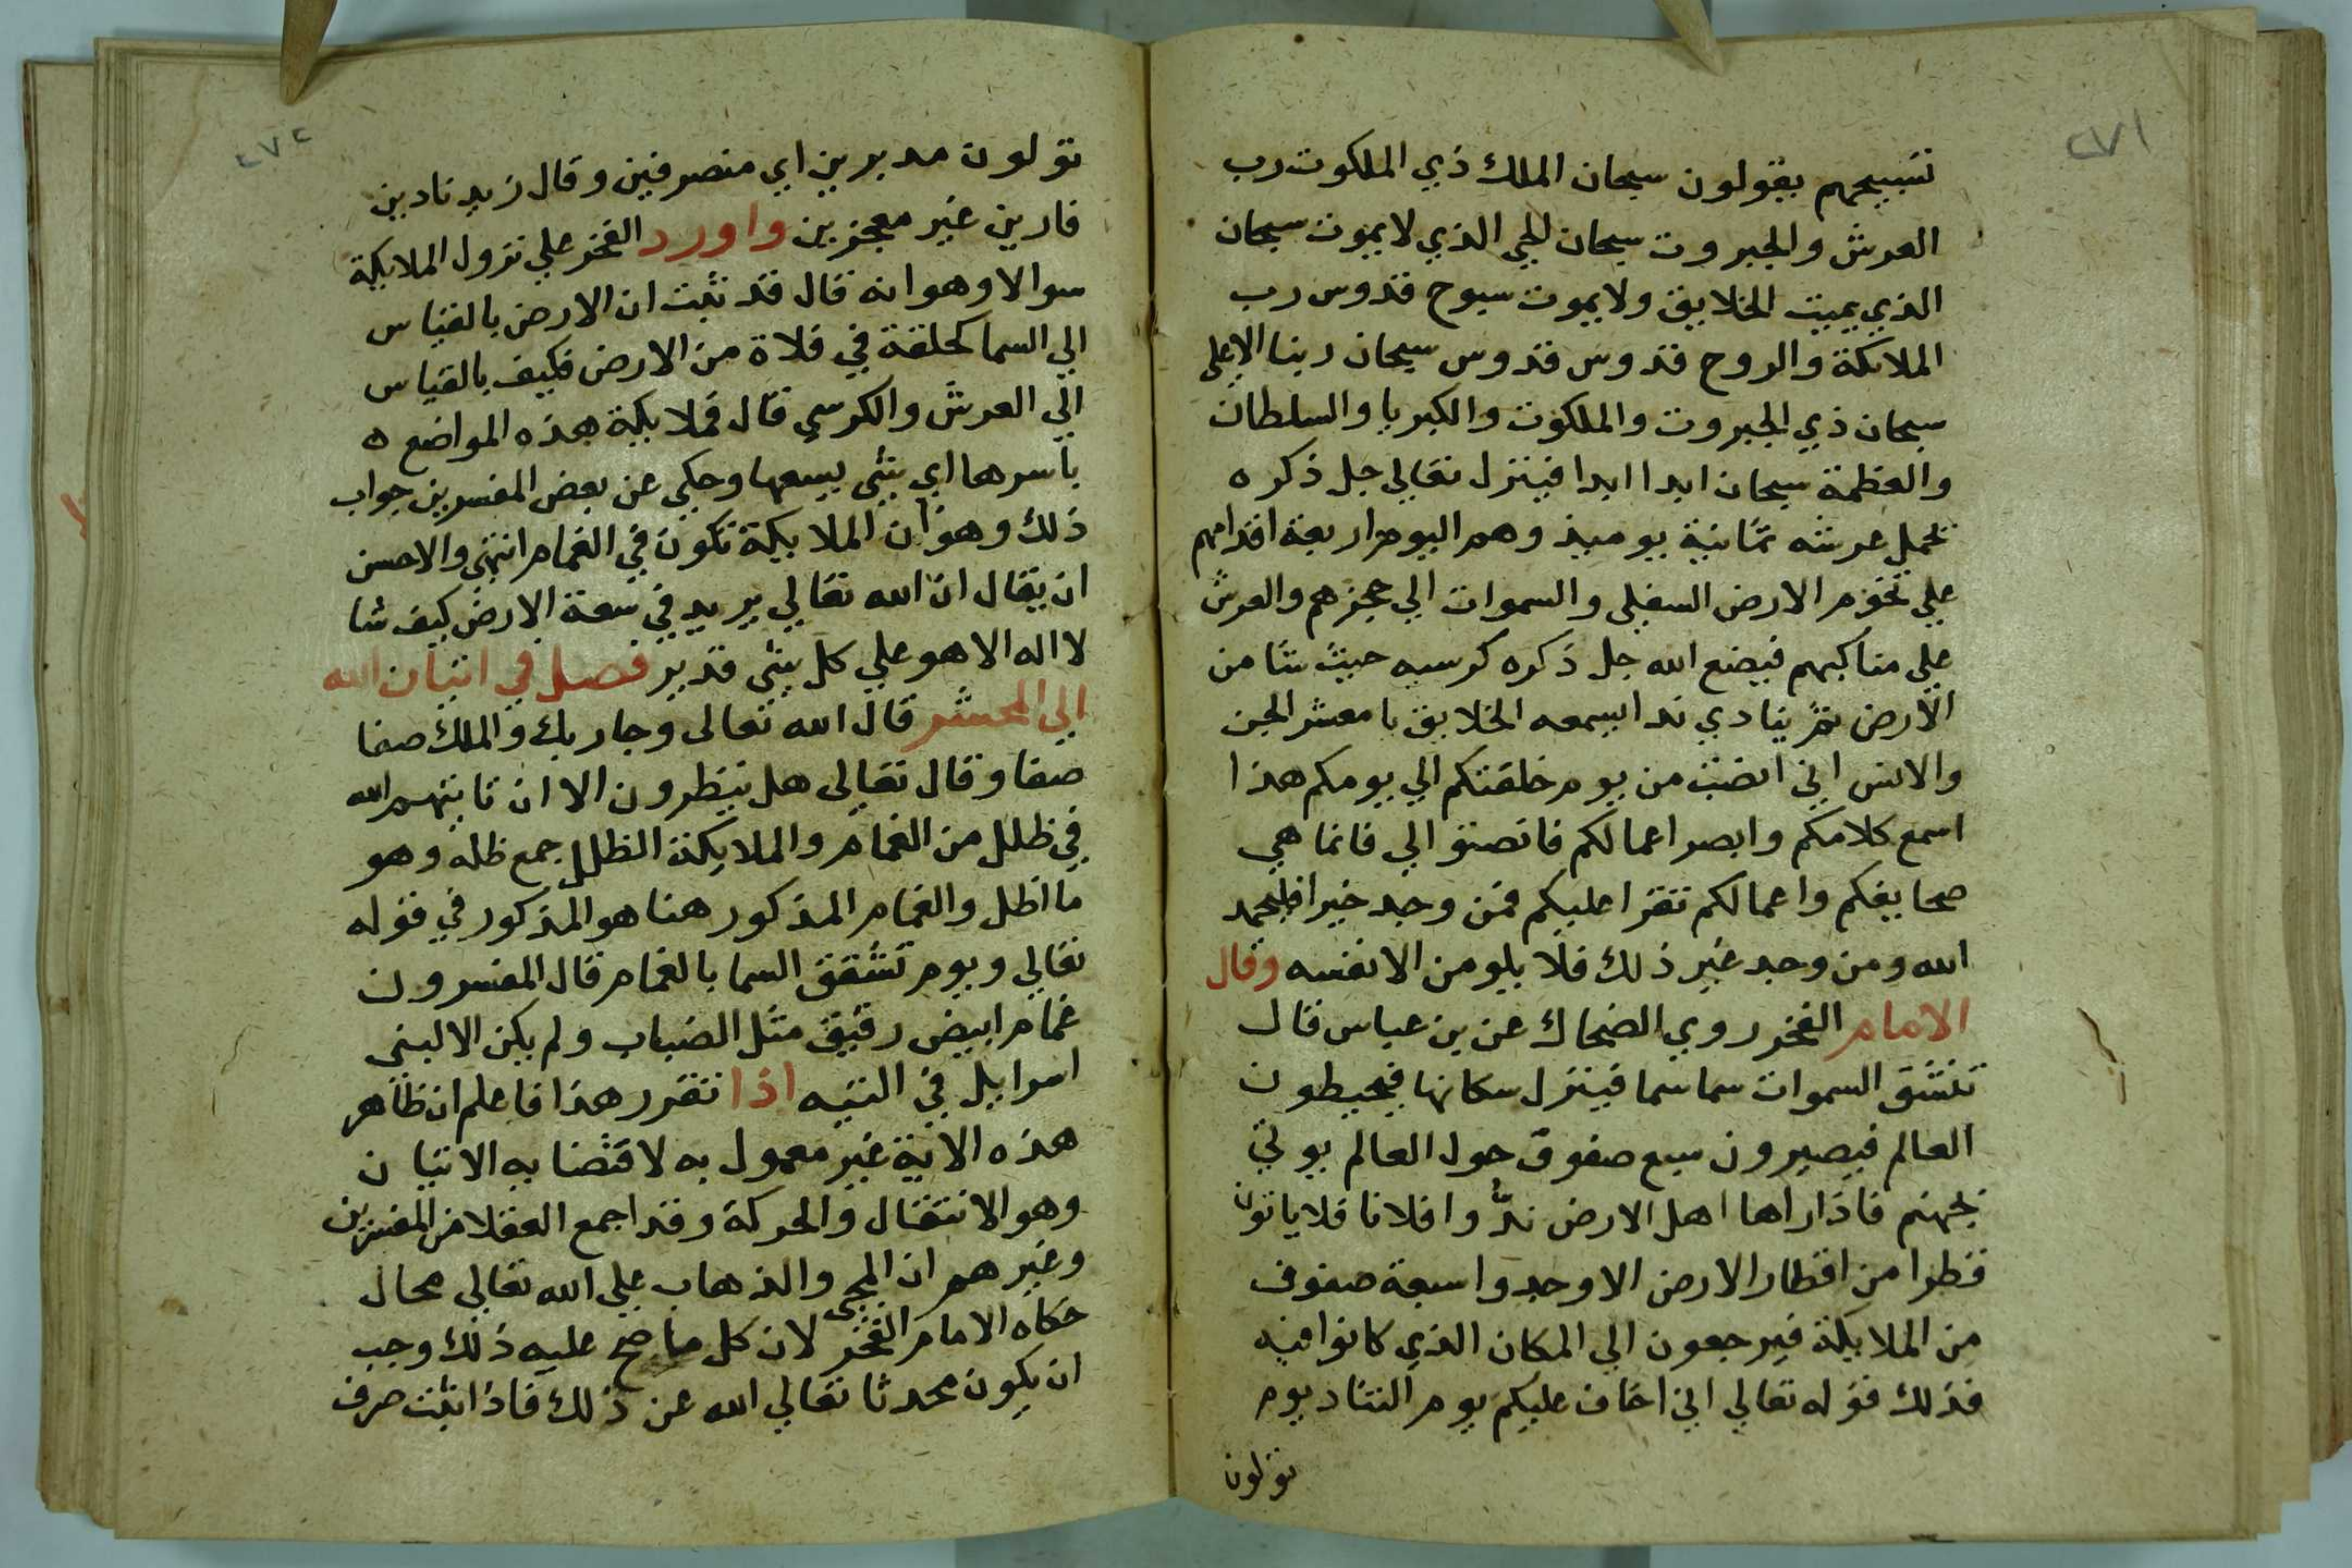 ٢٧١
تسبيحهم يقولون سبحان الملك ذي الملكوت رب
العرش والجبروت سبحان الحي الذي لا يموت سبحان
الذي يميت الخلايق ولا يموت سبوح قدوس رب
الملائكة والروح قدوس قدوس سبحان ربنا الاعلى
سبحان ذي الجبروت والملكوت والكبريا والسلطان
والعظمة سبحان ابدا ابدا فينزل تعالي جل ذكره
تحمل عرشه ثمانية يوميذ وهم اليوم اربعة اقدامهم
علي تخوم الارض السفلى والسموات الي حجزهم والعرش
علي مناكبهم فيضع الله جل ذكره كرسيه حيث شا من
الارض ثم ينادي ندا يسمعه الخلايق يا معشر الجن
والانس اني انصت من يوم خلقتكم الي يومكم هذا
اسمع كلامكم وابصر اعمالكم فانصتو الي فانما هي
صحايفكم واعمالكم تقرا عليكم فمن وجد خيرا فليحمد
الله ومن وجد غير ذلك فلا يلومن الا نفسه وقال
الامام الفخر روي الضحاك عن بن عباس قال
تنشق السموات سما سما فينزل سكانها فيحيطون
العالم فيصيرون سبع صفوف حول العالم يوتي
بجهنم فاذا راها اهل الارض ندُّوا فلانا فلا ياتون
قطرا من اقطار الارض الا وجدوا سبعة صفوف
من الملايكة فيرجعون الي المكان الذي كانوا فيه
فذلك قوله تعالي اني اخاف عليكم يوم التناد يوم
تولون
٢٧٢
تولون مدبرين اي منصرفين وقال زيد نادين
فارين غير معجزين واورد الفخر علي نزول الملايكة
سوالا وهو انه قال قد ثبت ان الارض بالقياس
الي السما كحلقة في فلاة من الارض فكيف بالقياس
الي العرش والكرسي قال فملايكة هذه المواضع ه
باسرها اي شي يسعها وحكي عن بعض المفسرين جواب
ذلك وهو ان الملايكة تكون في الغمام انتهى والاحسن
ان يقال ان الله تعالي يريد في سعة الارض كيف شا
لا اله الا هو علي كل شي قدير فصل في اتيان الله
الي المحشر قال الله تعالى وجا ربك والملك صفا
صفا وقال تعالي هل ينظرون الا ان تاتيهم الله
في ظلل من الغمام والملايكة الظلل جمع ظله وهو
ما اظل والغمام المذكور هنا هو المذكور في قوله
تعالي ويوم تشقق السما بالغمام قال المفسرون
غمام ابيض رقيق مثل الضباب ولم يكن الا لبني
اسراييل في التيه اذا تقرر هذا فاعلم ان ظاهر
هذه الاية غير معمول به لاقتضا به الاتيان
وهو الانتقال والحركة وقد اجمع العقلا من المفسرين
وغيرهم ان المجي والذهاب علي الله تعالي محال
حكاه الامام الفخر لان كل ما صح عليه ذلك وجب
ان يكون محدثا تعالي الله عن ذلك فاذا ثبت صرف